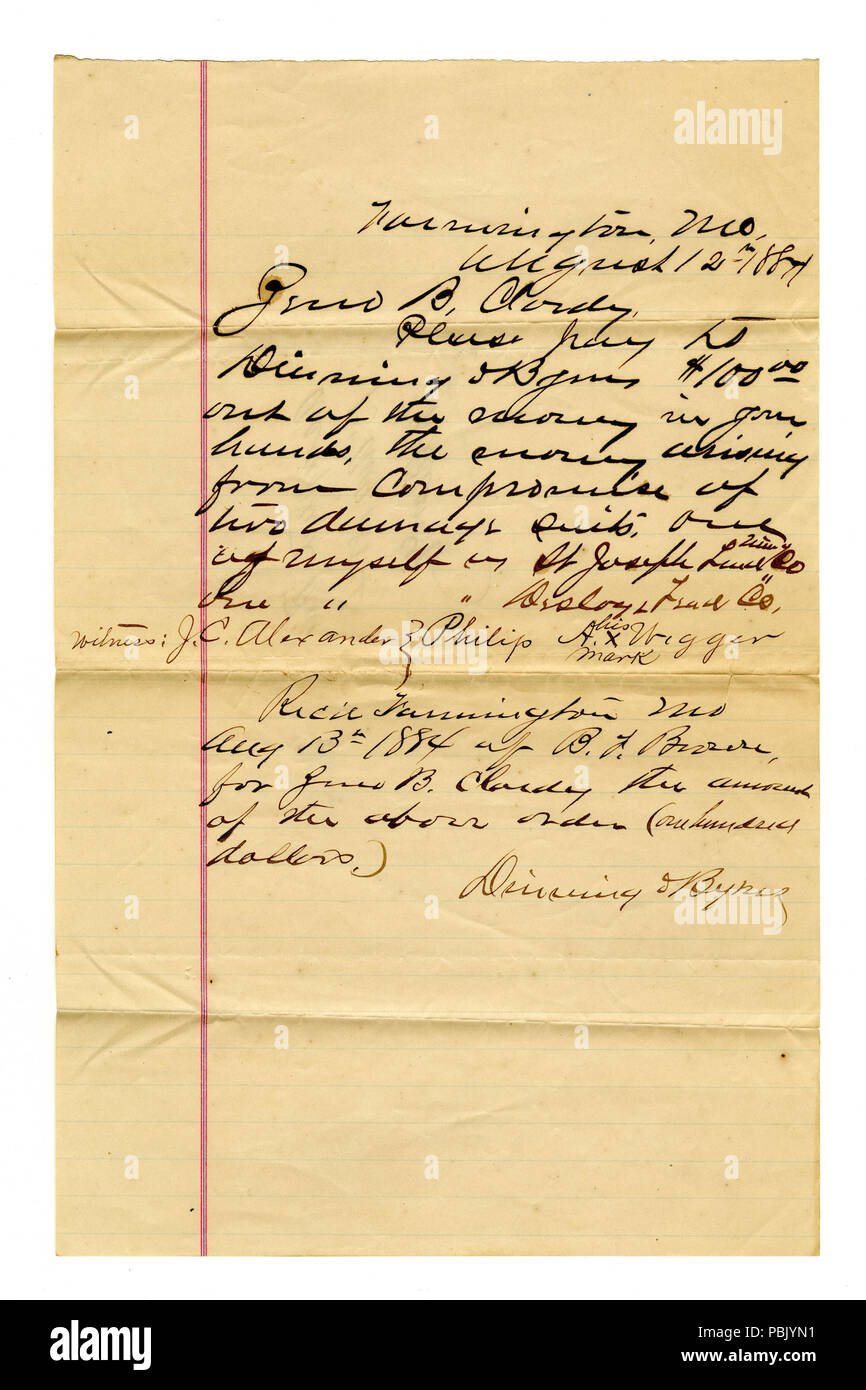 Farmington, Mo,
August 12th 1884
Jno B. Clardy,
Please pay to
Dinning & Byrns $100.00
out of the money in your
hands, the money arising
from Compromise of
two damage suits. one
of myself vs St Joseph Lead Mining Co
one " " Desloge Lead Co,
witness: J. C. Alexander } Philip A. his x mark Wigger
Rec'd Farmington Mo
Aug 13th 1884 of B. T.
for Jno B. Clardy the amount
of the above order (one hundred
dollars.)
Dinning & Byrns
alamy
a
alamy
a
alamy
Image ID: PBJYN1
www.alamy.com